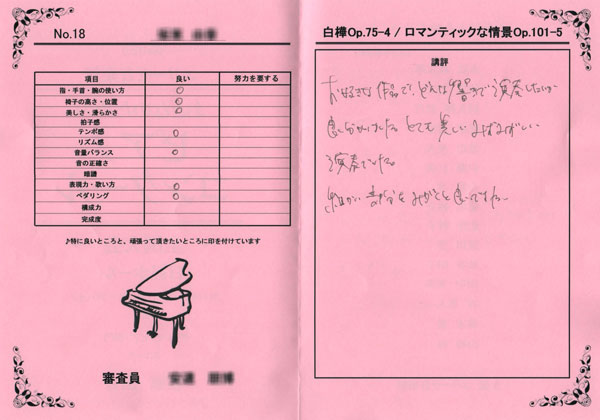 No.18
項目 良い 努力を要する
指・手首・腕の使い方 ○
椅子の高さ・位置 ○
美しさ・滑らかさ ○
拍子感
テンポ感 ○
リズム感
音量バランス ○
音の正確さ
暗譜
表現力・歌い方 ○
ペダリング ○
構成力
完成度
♪特に良いところと、頑張って頂きたいところに印を付けています
審査員
白樺Op.75-4 / ロマンティックな情景Op.101-5
講評
お好きな作品で、どんな響きで演奏したいか
良く分かりました。とても美しい みずみずしい
演奏でした。
細かい 部分を みがくと良いですね。